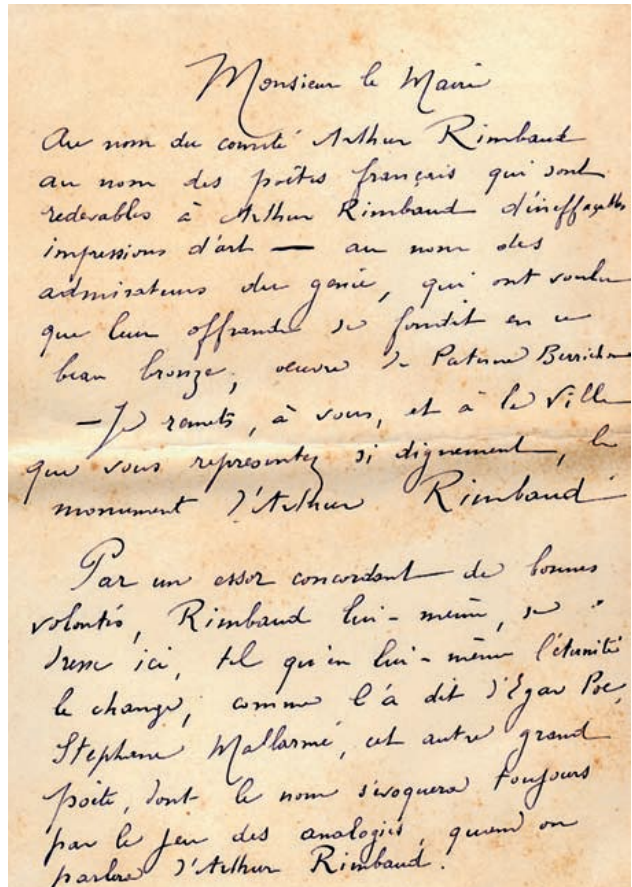 Monsieur le Maire
Au nom du comité Arthur Rimbaud
au nom des poètes français qui sont
redevables à Arthur Rimbaud d'ineffaçables
impressions d'art — au nom des
admirateurs du génie, qui ont voulu
que leur offrande se fondit en ce
beau bronze, oeuvre de Paterne Berrichon
— Je remets, à vous, et à la Ville
que vous représentez si dignement, le
monument d'Arthur Rimbaud
Par un essor concordant de bonnes
volontés, Rimbaud lui-même, se
dresse ici, tel qu'en lui-même l'éternité
le change, comme l'a dit d'Egar Poe,
Stephane Mallarmé, cet autre grand
poète, dont le nom s'évoquera toujours
par le jeu des analogies, quand on
parlera d'Arthur Rimbaud.